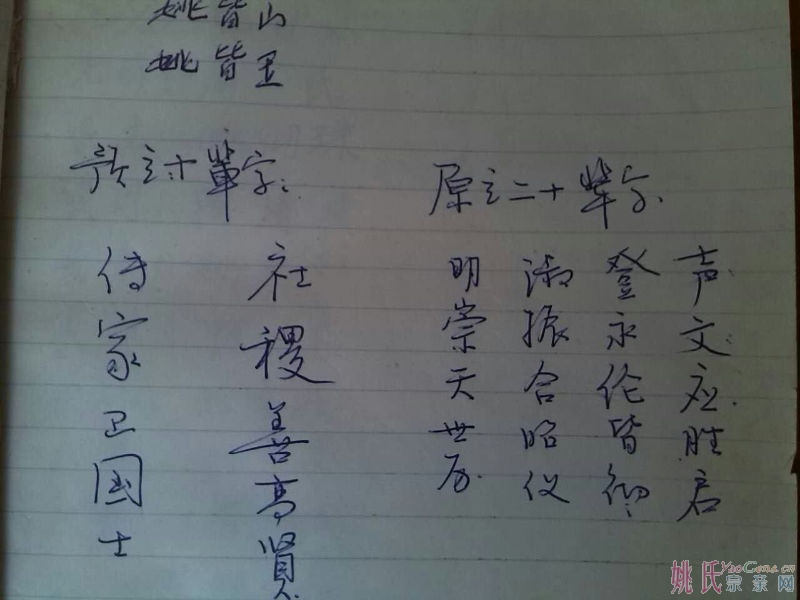 姚皆山
姚皆里
原立二十辈字
声文应胜启
登永伦皆
振合昭仪
明崇天世历
预立十辈字：
社稷善高贤
传家卫国士
姚氏宗亲网